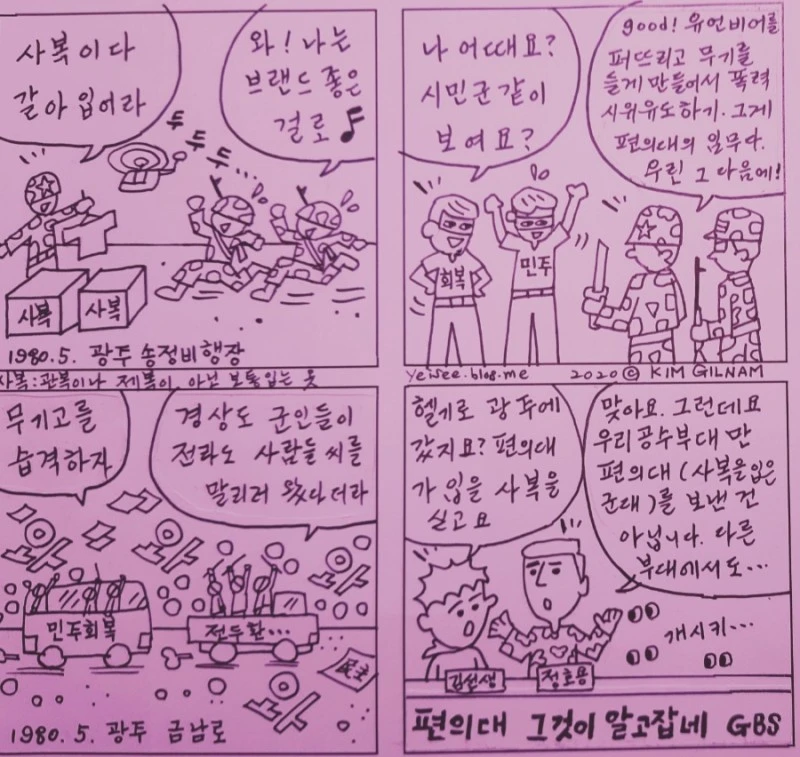 사복이다
갈아입어라
와! 나는
브랜드 좋은
걸로♪
두
두
두...
사복
사복
1980.5. 광주 송정비행장
사복:관복이나 제복이 아닌 보통입는 옷
나 어때요?
시민군같이
보여요?
good! 유언비어를
퍼뜨리고 무기를
들게 만들어서 폭력
시위유도하기. 그게
편의대의 임무다.
우린 그 다음에!
회복
민주
yeisee.blog.me
2020 © KIM GILNAM
무기고를
습격하자
경상도 군인들이
전라도 사람들 씨를
말리러 왔다더라
와
와
와
와
민주회복
전두환...
民主
1980.5. 광주 금남로
헬기로 광주에
갔지요? 편의대
가 입을 사복을
싣고요
맞아요. 그런데요
우리공수부대 만
편의대 (사복을입은
군대)를 보낸 건
아닙니다. 다른
부대에서도...
개시키...
김선생
정호용
편의대 그것이 알고잡네 GBS